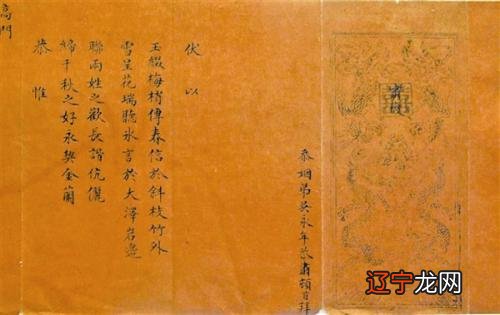 忝姻弟吳永年恭肅頓首拜
伏以
玉綴梅梢傳春信於斜枝竹外
雪呈花瑞聽氷言於大澤岩邊
聯兩姓之歡長諧伉儷
締千秋之好永契金蘭
恭惟
高門
辽宁龙网